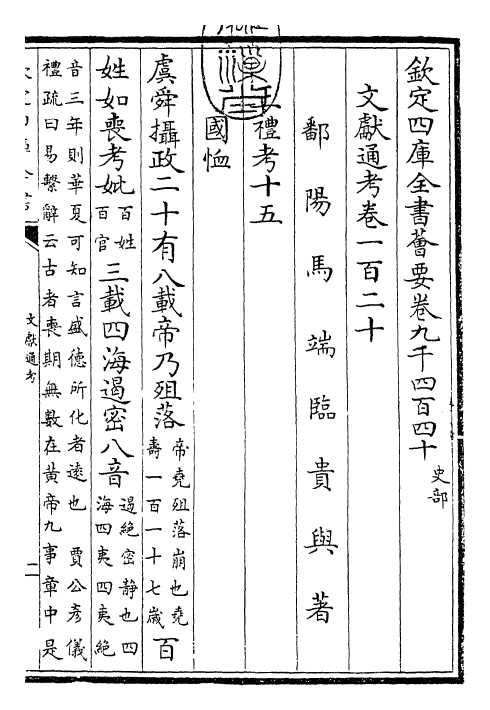 欽定四庫全書薈要卷九千四百四十 史部
文獻通考卷一百二十
鄱陽馬端臨貴與著
王禮考十五
國恤
虞舜攝政二十有八載帝乃殂落帝堯殂落崩也堯壽一百一十七歲百
姓如喪考妣百姓百官三載四海遏密八音遏絕密静也四海四夷四夷絕
音三年則華夏可知言盛德所化者遠也 賈公彥儀
禮疏曰易繫辭云古者喪期無數在黄帝九事章中是
文獻通考
二